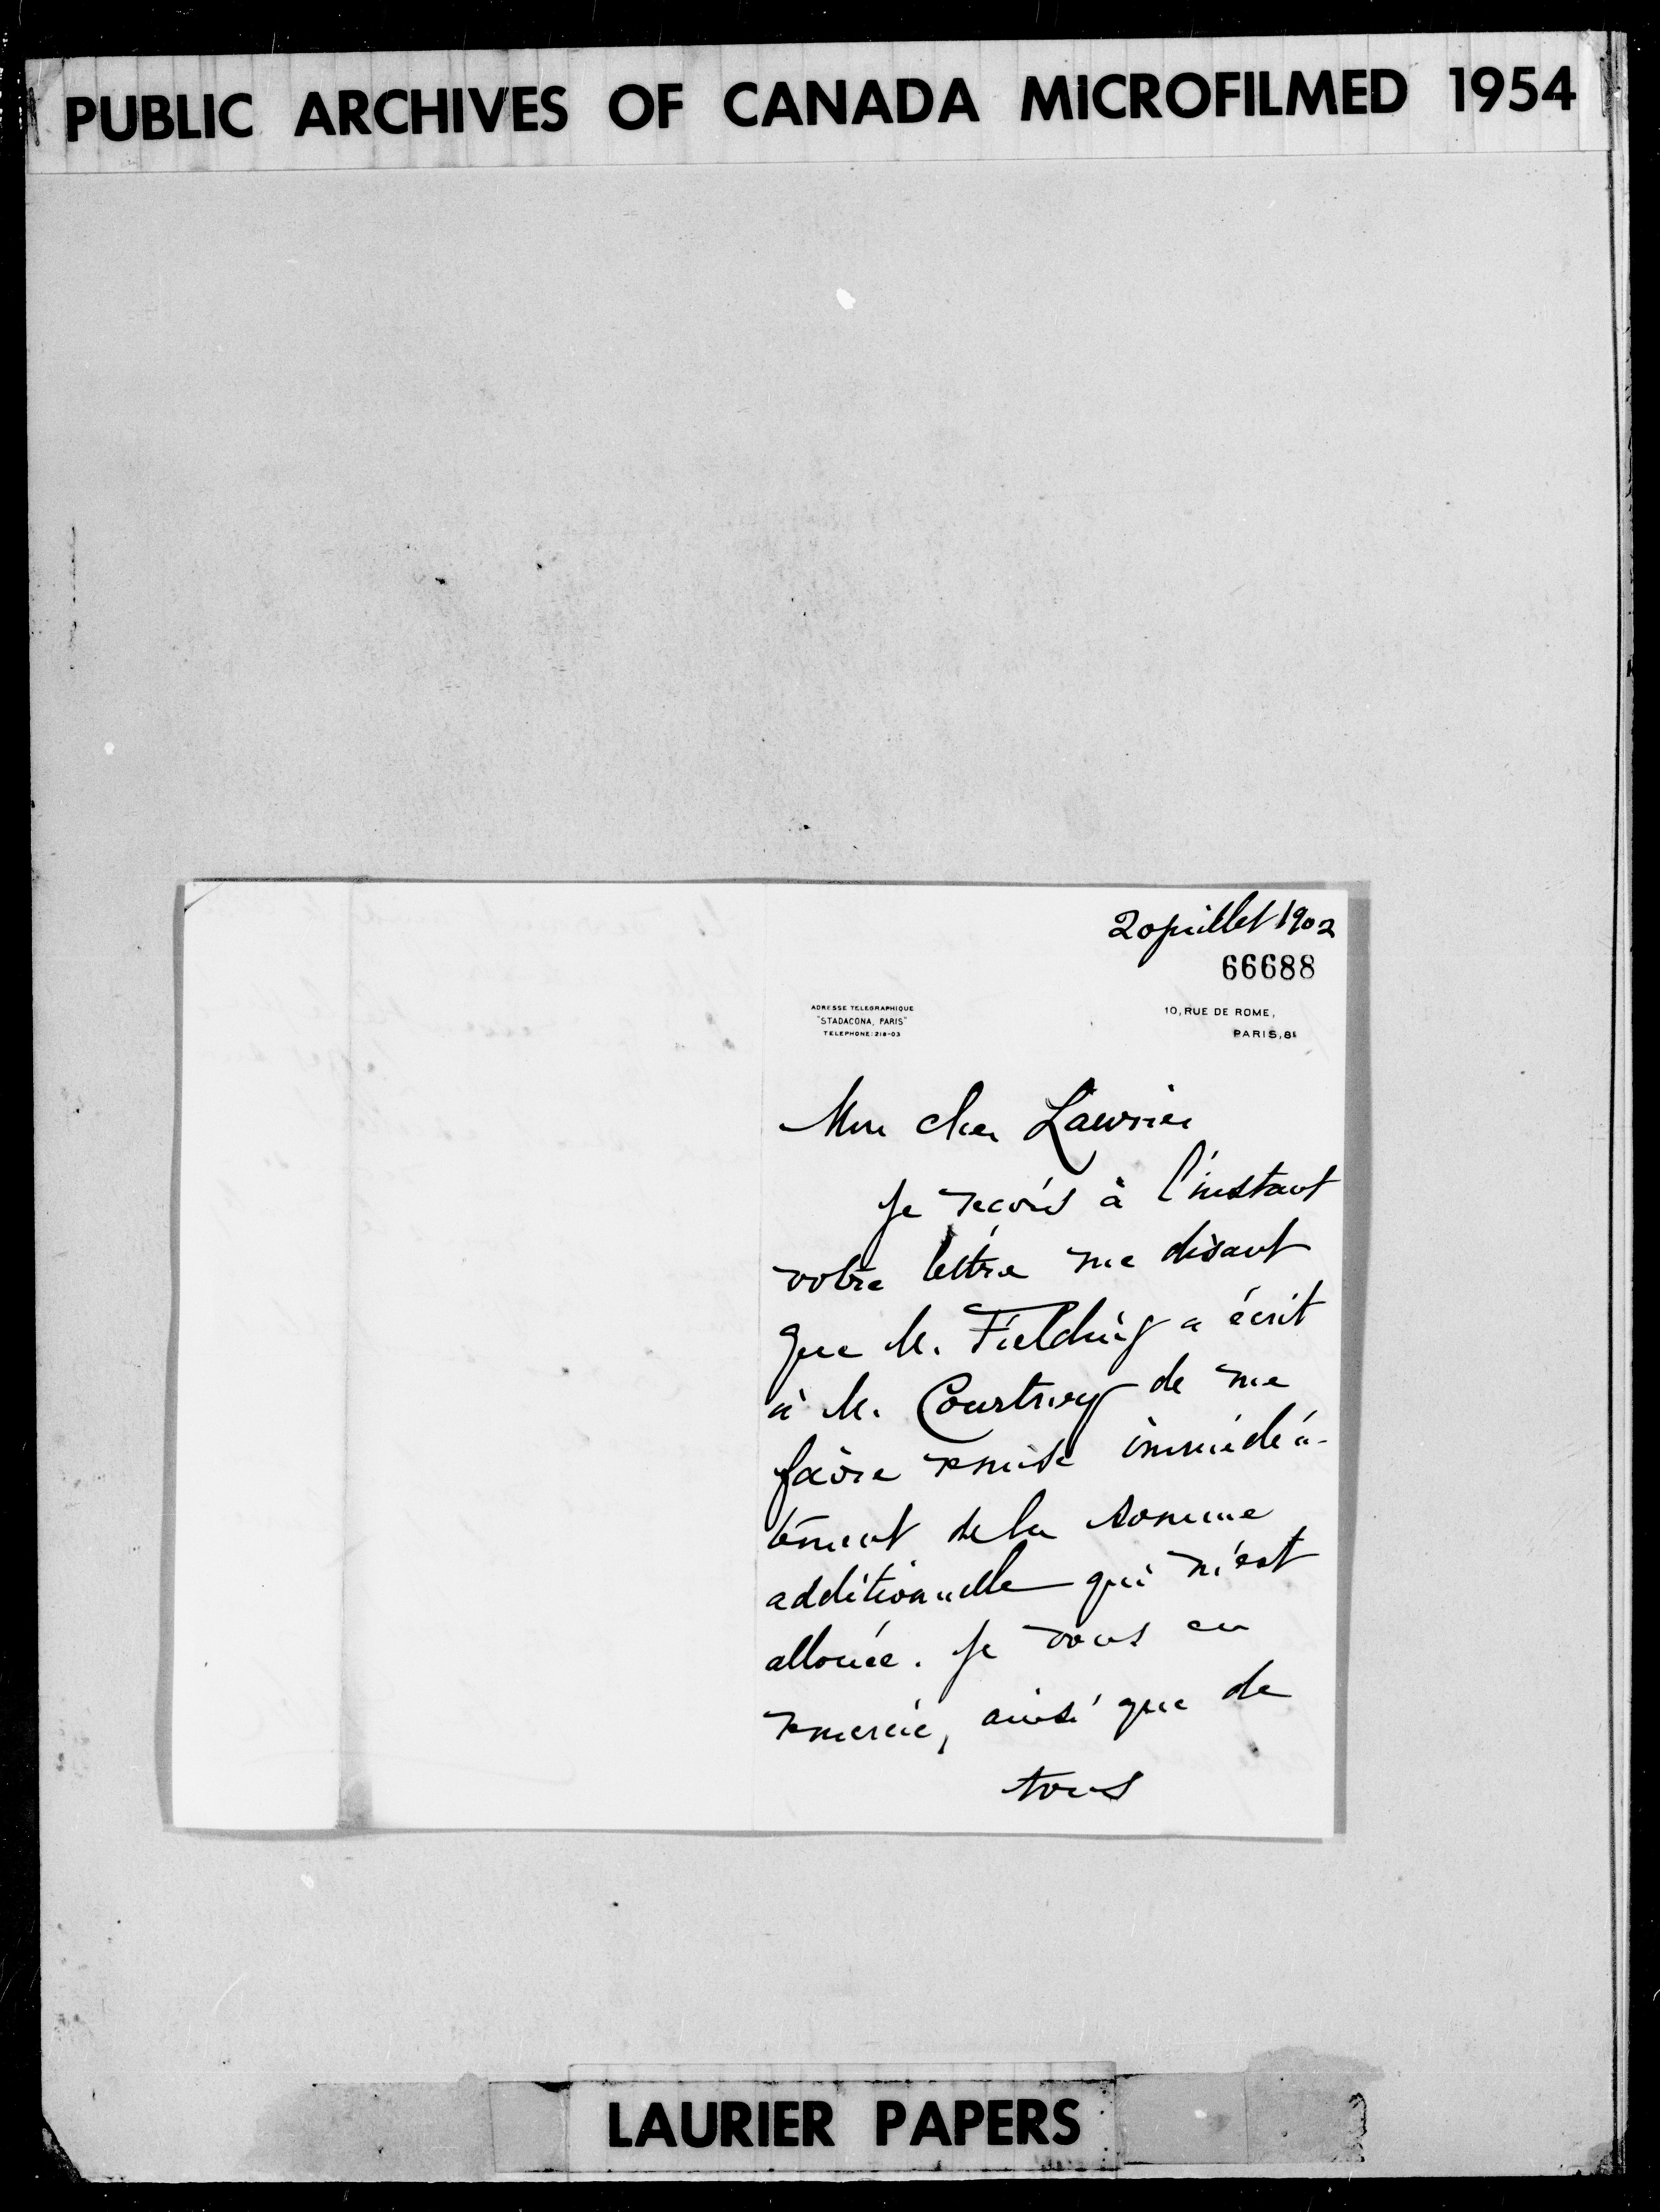 PUBLIC ARCHIVES OF CANADA MICROFILMED 1954
20 juillet 1902
66688
ADRESSE TELEGRAPHIQUE
"STADACONA, PARIS"
TELEPHONE: 218-03
10, RUE DE ROME,
PARIS, 8e
Mon cher Laurier
Je reçois à l'instant
votre lettre me disant
que M. Fielding a écrit
à M. Courtney de me
faire remise immédia-
tement de la somme
additionnelle qui m'est
allouée. Je vous en
remercie, ainsi que de
tous
LAURIER PAPERS